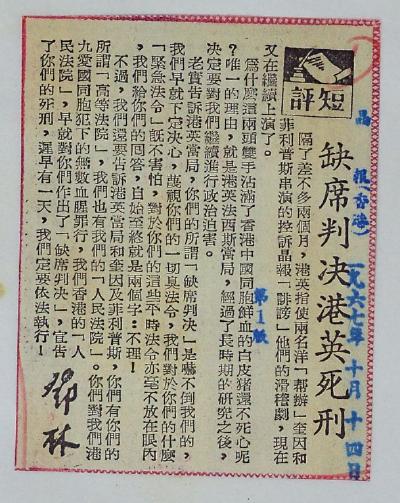 短評
缺席判决港英死刑
晶報(香港)
一九六七年十月十四日
第1版
隔了差不多兩個月,港英指使兩名洋「帮辦」奎因和
菲利普斯串演的控訴晶報「誹謗」他們的滑稽劇,現在
又在繼續上演了。
爲什麽這兩頭雙手沾滿了香港中國同胞鮮血的白皮猪還不死心呢
?唯一的理由,就是港英法西斯當局,經過了長時期的研究之後,
決定要對我們繼續進行政治迫害。
老實告訴港英當局,你們的所謂「缺席判决」是嚇不倒我們的,
我們早就下定决心,蔑視你們的一切臭法令,我們對於你們的什麽
「緊急法令」旣不害怕,對於你們的這些平時法令亦毫不放在眼內
,我們給你們的回答,自始至終就是兩個字:不理!
不過,我們還要告訴港英當局和奎因及菲利普斯,你們有你們的
所謂「高等法院」,我們也有我們的「人民法院」。你們對我們港
九愛國同胞犯下的無數血腥罪行,我們香港的「人
民法院」,早就對你們作出了「缺席判决」,宣告
了你們的死刑,遲早有一天,我們定要依法執行!
鄧林